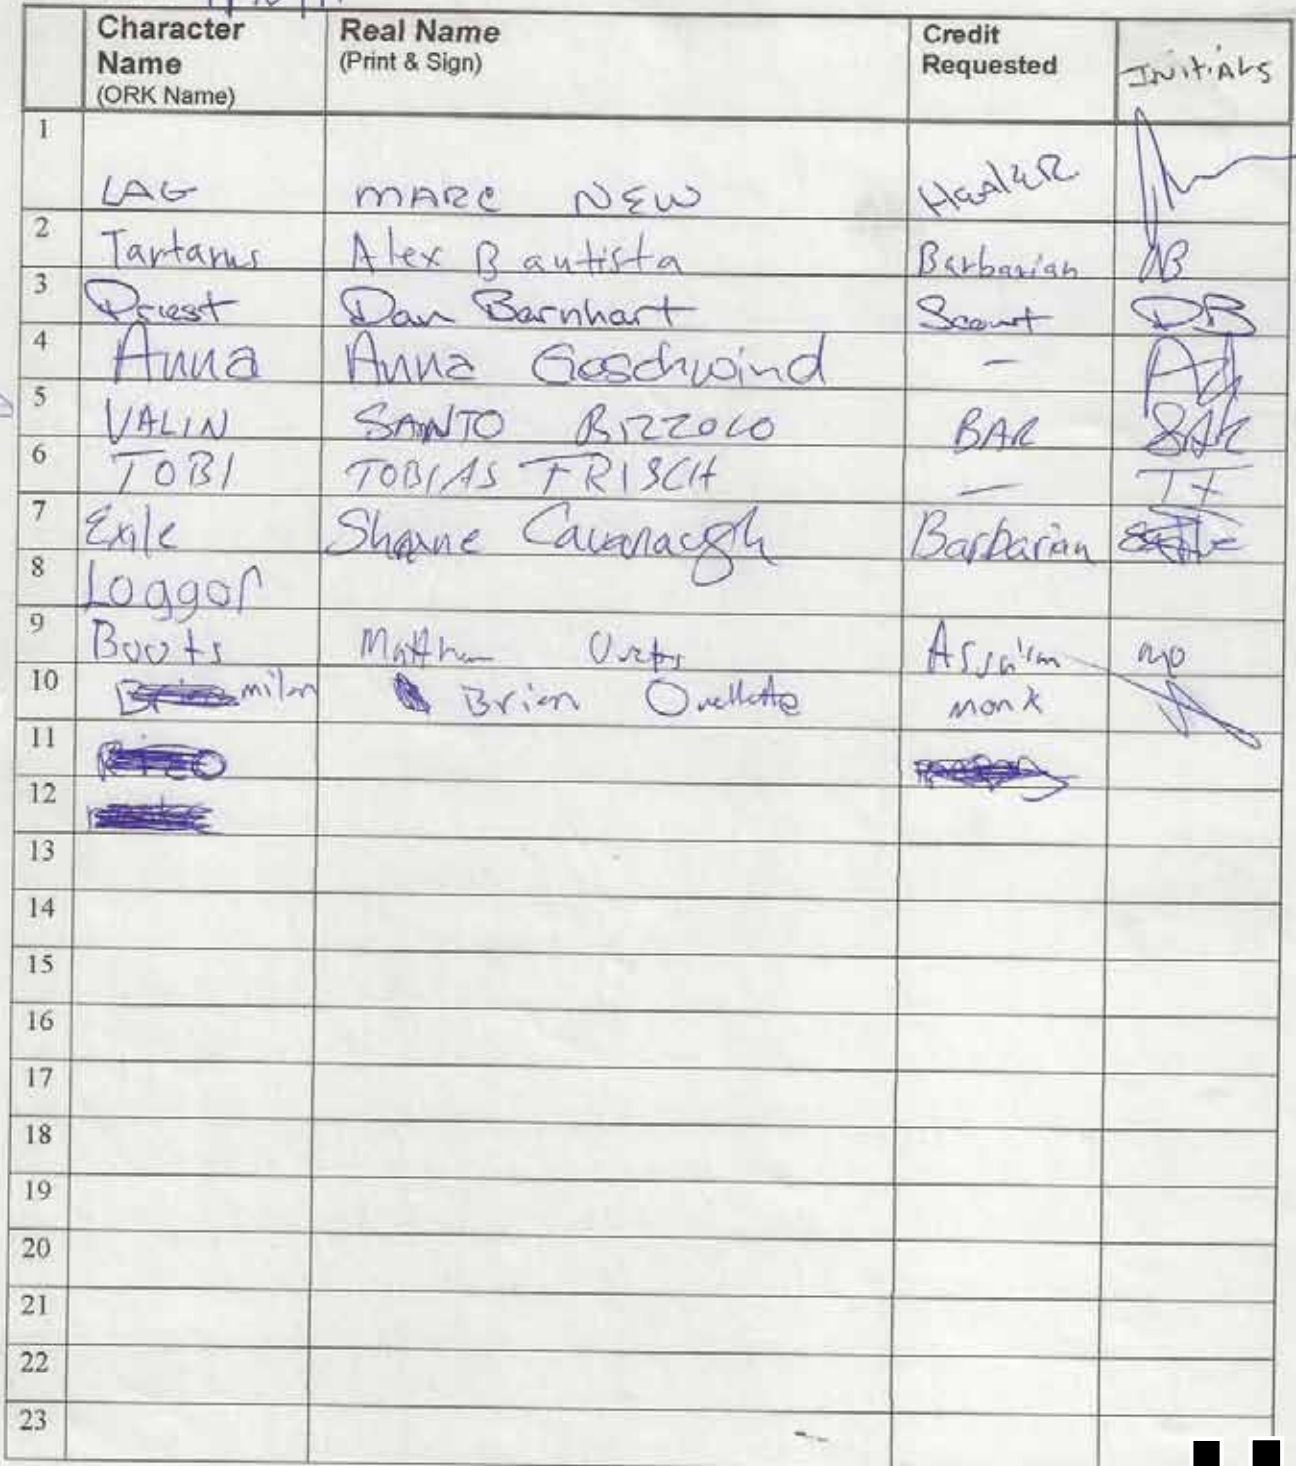 Character Name (ORK Name) Real Name (Print & Sign) Credit Requested INITIALS
1 LAG MARC NEW HEALER
2 Tartarus Alex Bautista Barbarian AB
3 Priest Dan Barnhart Scout DB
4 Anna Anna Goschwind - AG
5 VALIN SANTO BIZZOLO BAR
6 TOBI TOBIAS FRISCH - TF
7 Exile Shaane Cavanaugh Barbarian
8 Loggor
9 Boots Matthew Assa'sin mo
10 milan Brian Ouellette monk
11
12
13
14
15
16
17
18
19
20
21
22
23